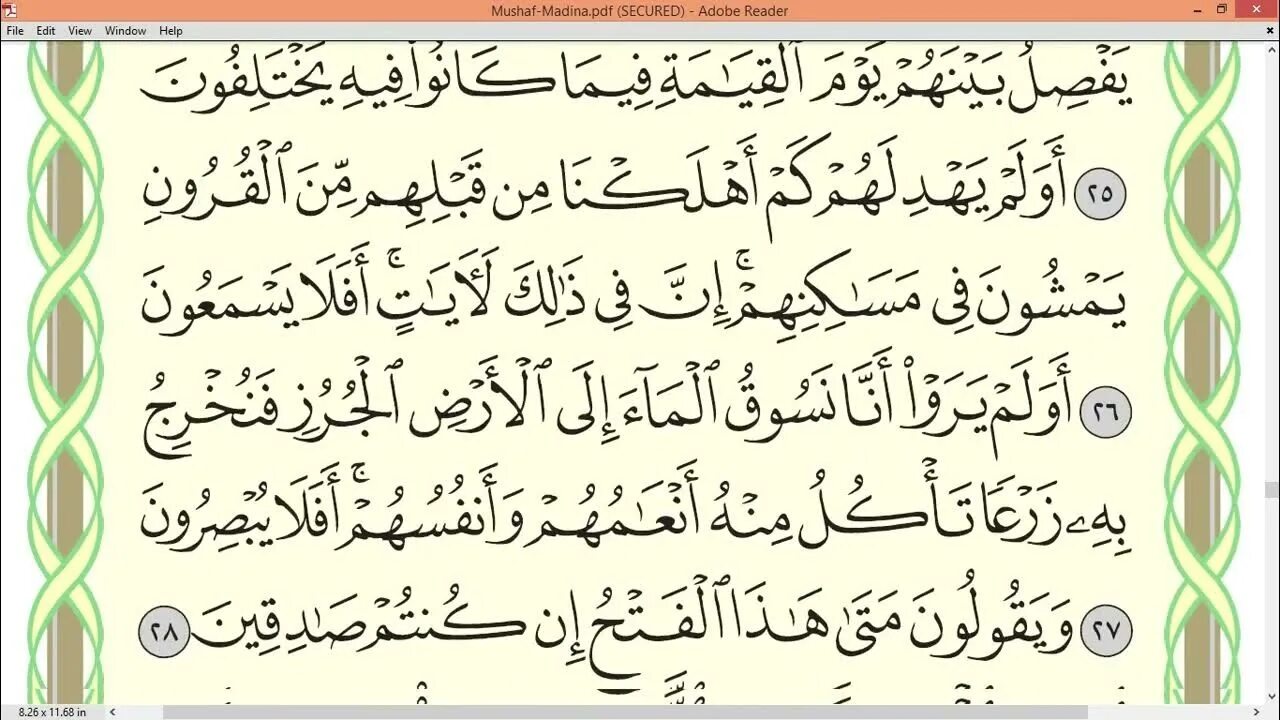 Mushaf-Madina.pdf (SECURED) - Adobe Reader
File Edit View Window Help
يَفْصِلُ بَيْنَهُمْ يَوْمَ ٱلْقِيَٰمَةِ فِيمَا كَانُوا۟ فِيهِ يَخْتَلِفُونَ
٢٥ أَوَلَمْ يَهْدِ لَهُمْ كَمْ أَهْلَكْنَا مِن قَبْلِهِم مِّنَ ٱلْقُرُونِ
يَمْشُونَ فِى مَسَٰكِنِهِمْ ۚ إِنَّ فِى ذَٰلِكَ لَءَايَٰتٍ ۚ أَفَلَا يَسْمَعُونَ
٢٦ أَوَلَمْ يَرَوْا۟ أَنَّا نَسُوقُ ٱلْمَآءَ إِلَى ٱلْأَرْضِ ٱلْجُرُزِ فَنُخْرِجُ
بِهِۦ زَرْعًا تَأْكُلُ مِنْهُ أَنْعَٰمُهُمْ وَأَنفُسُهُمْ ۚ أَفَلَا يُبْصِرُونَ
٢٧ وَيَقُولُونَ مَتَىٰ هَٰذَا ٱلْفَتْحُ إِن كُنتُمْ صَٰدِقِينَ ٢٨
8.26 x 11.68 in